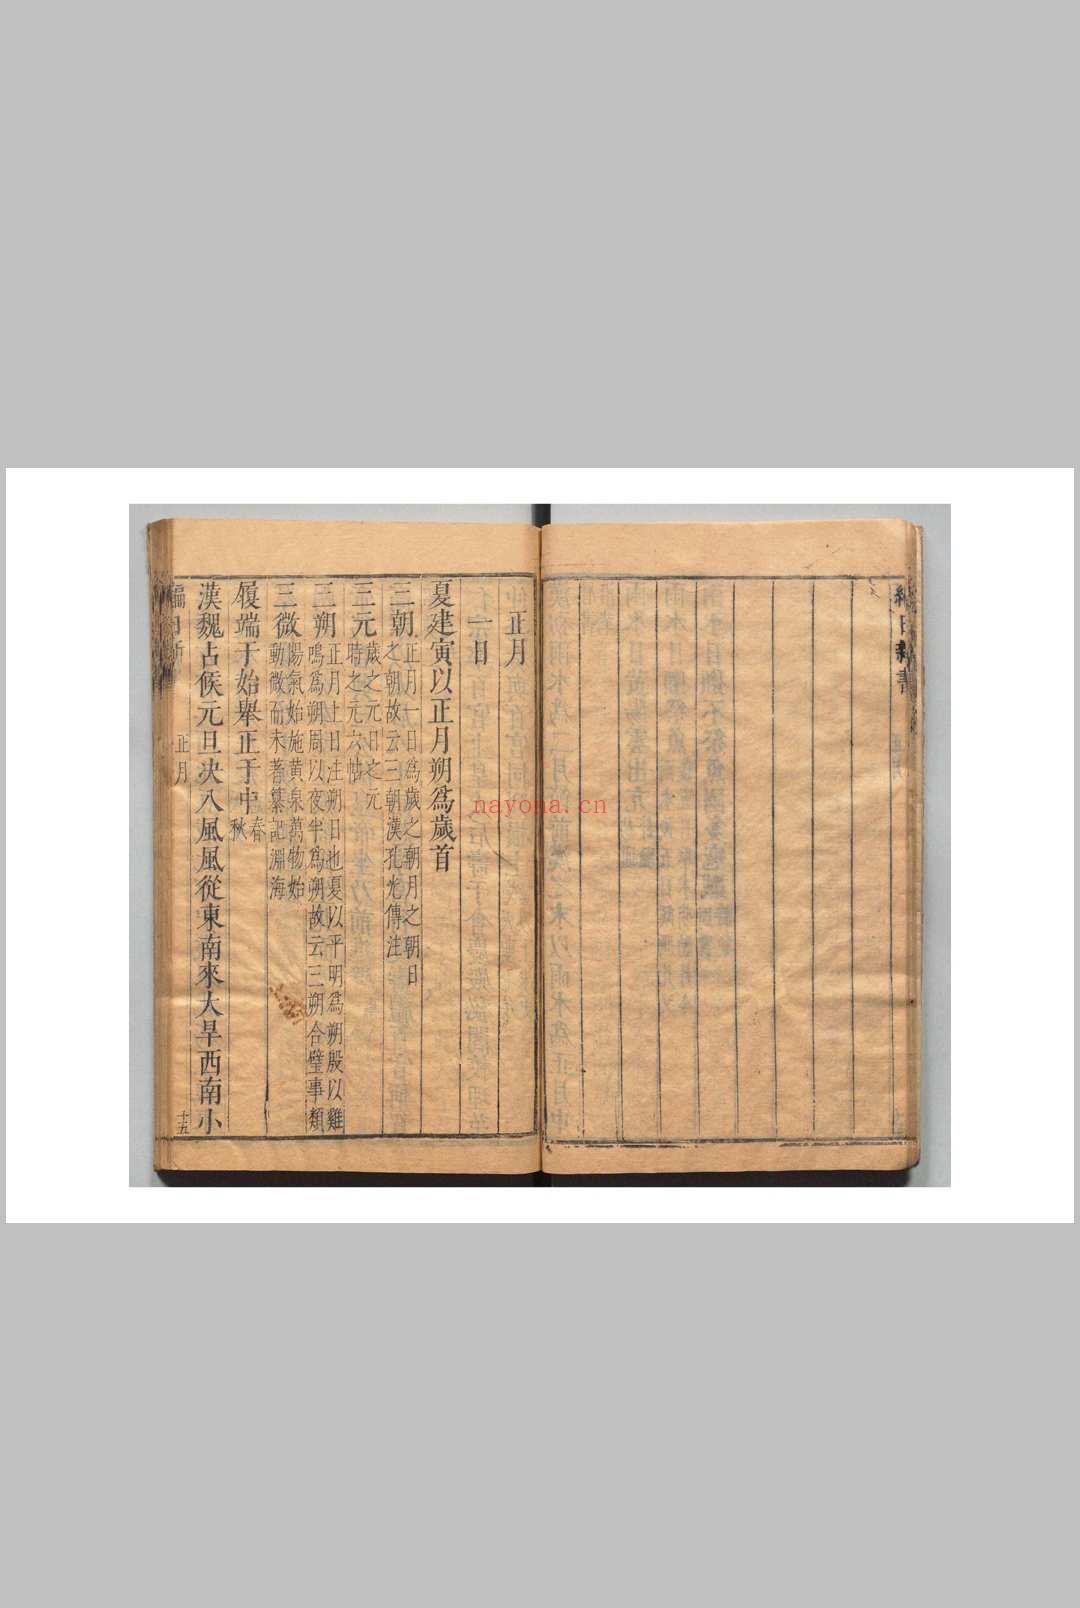 正月
一日
夏建寅以正月朔爲歲首
三朝正月一日爲歲之朝月之朝日
之朝故云三朝漢孔光傳注
三元歲之元日之元
時之元六帖
三朔正月上日注朔日也夏以平明爲朔殷以雞
鳴爲朔周以夜半爲朔故云三朔合璧事類
三微陽氣始施黄泉萬物始
動微而未著纂記淵海
履端于始舉正于中春
秋
漢魏占候元旦决八風風從東南來大旱西南小
正月
十五
nayona.cn